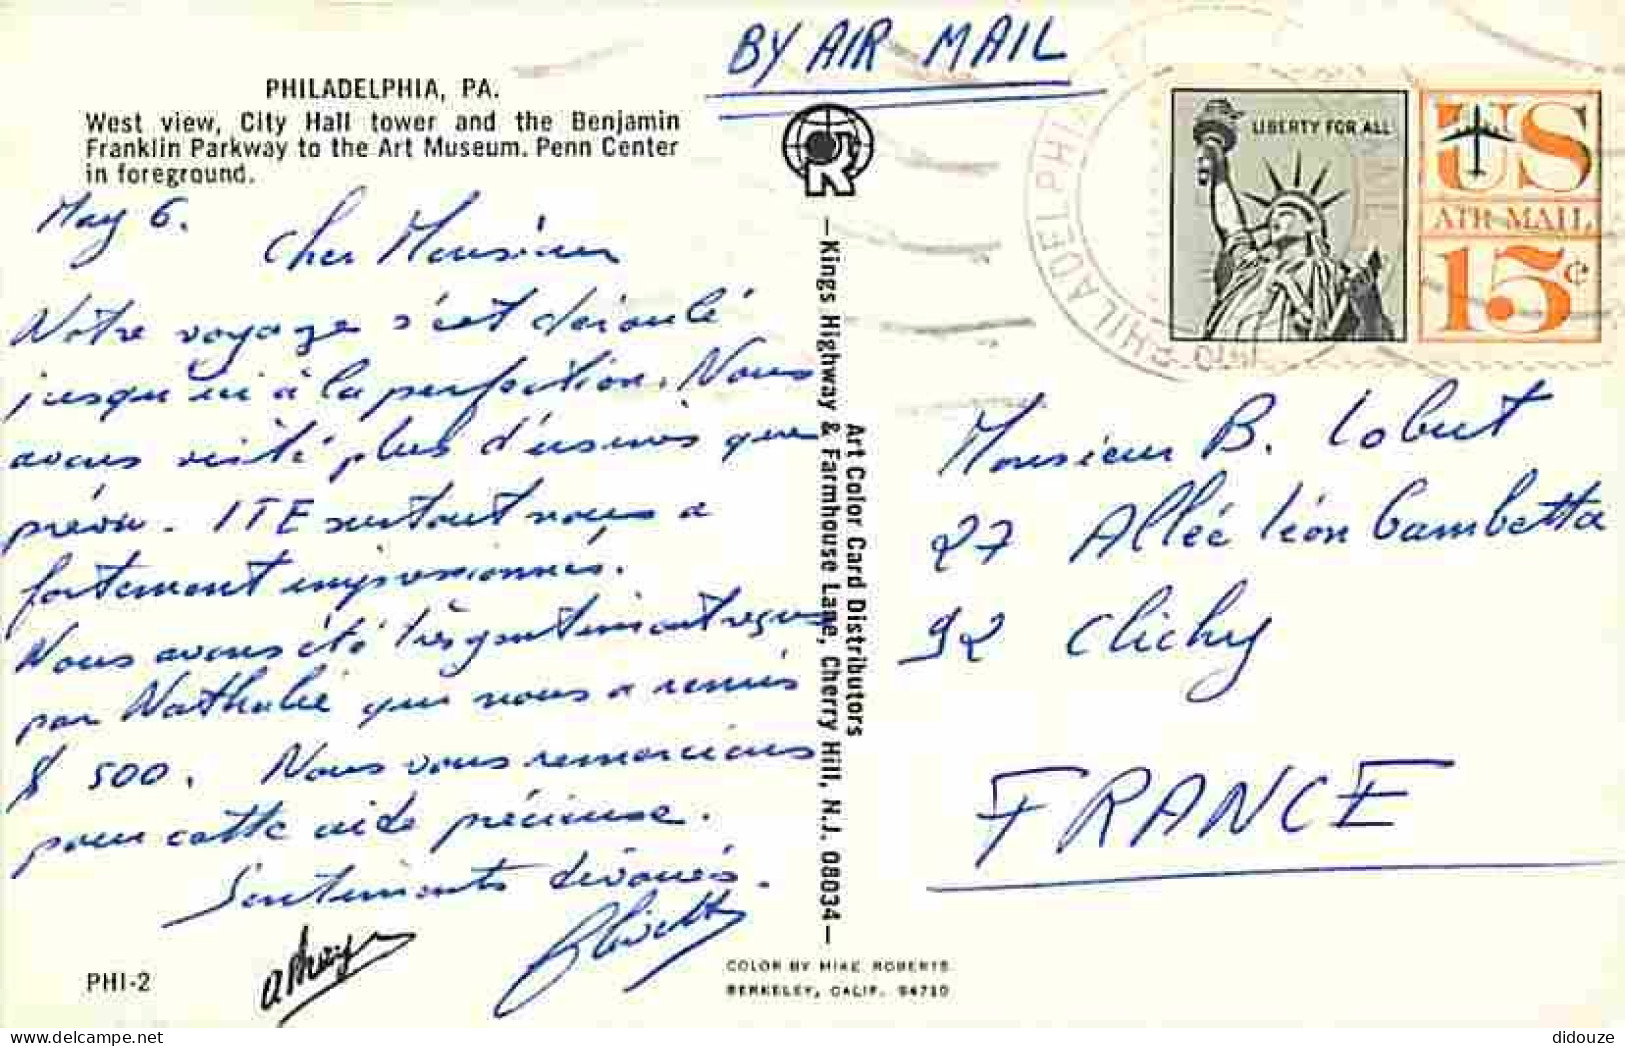 BY AIR MAIL
PHILADELPHIA, PA.
West view, City Hall tower and the Benjamin
Franklin Parkway to the Art Museum. Penn Center
in foreground.
May 6.
Cher Monsieur
Notre voyage s'est déroulé
jusqu'ici à la perfection. Nous
avons visité plus d'usines que
prévu. ITE surtout nous a
fortement impressionnés.
Nous avons été très gentiment reçus
par Nathalie qui nous a remis
$ 500. Nous vous remercions
pour cette aide précieuse.
Sentiments dévoués.
PHI-2
R
Art Color Card Distributors
— Kings Highway & Farmhouse Lane, Cherry Hill, N.J. 08034 —
COLOR BY MIKE ROBERTS
BERKELEY, CALIF. 94710
PHILADELPHIA
PHILADELPHIA
LIBERTY FOR ALL
US
AIR MAIL
15¢
Monsieur B. Lobut
27 Allée Léon Gambetta
92 Clichy
FRANCE
didouze